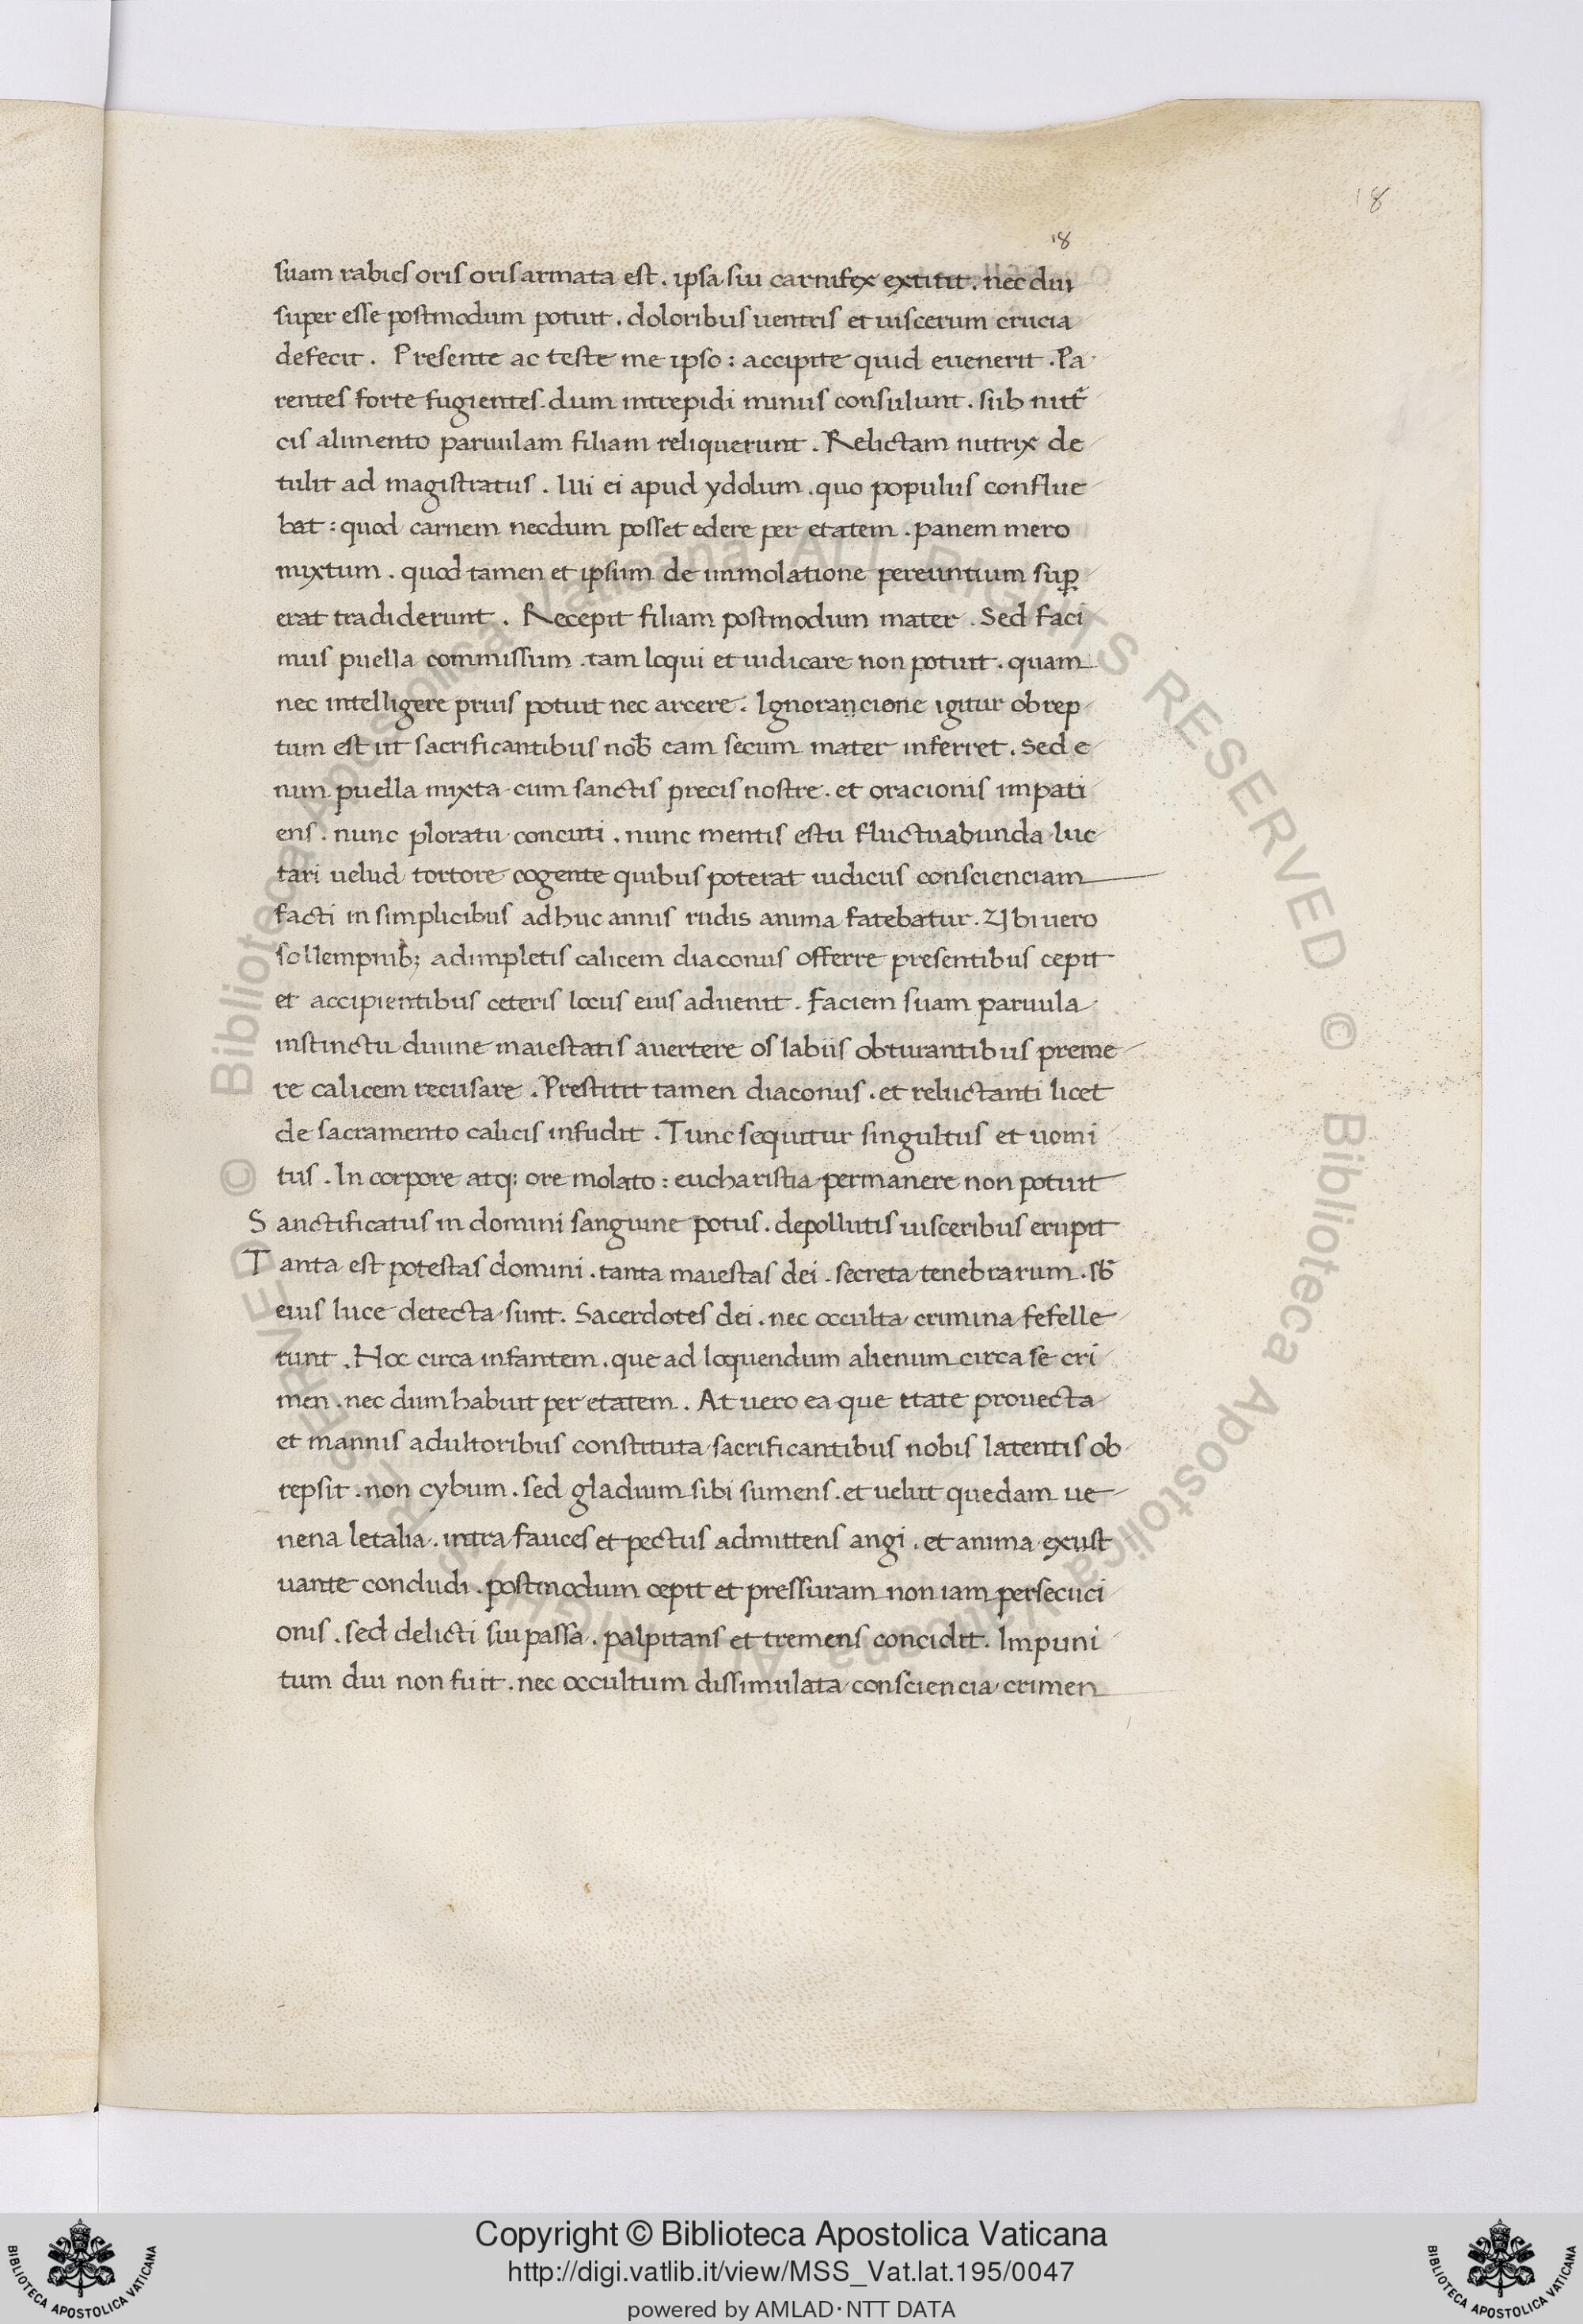 18
18
suam rabies oris oris armata est . ipsa sui carnifex extitit . nec diu
super esse postmodum potuit . doloribus uentris et uiscerum crucia
defecit . Presente ac teste me ipso : accipite quid euenerit . Pa
rentes forte fugientes . dum intrepidi minus consulunt . sub nut̃
cis alimento paruulam filiam reliquerunt . Relictam nutrix de
tulit ad magistratus . Illi ei apud ydolum . quo populus conflue
bat : quod carnem necdum posset edere per etatem . panem mero
mixtum . quod tamen et ipsum de immolatione pereuntium sup̲
erat tradiderunt . Recepit filiam postmodum mater . Sed faci
mus puella commissum . tam loqui et iudicare non potuit . quam
nec intelligere prius potuit nec arcere . Ignorancione igitur obrep
tum est ut sacrificantibus nob̃ eam secum mater inferret . Sed e
nim puella mixta cum sanctis precis nostre . et oracionis impati
ens . nunc ploratu concuti . nunc mentis estu fluctuabunda luc
tari uelud tortore cogente quibus poterat iudiciis conscienciam
facti in simplicibus adhuc annis rudis anima fatebatur . Ubi uero
sollempnib; adimpletis calicem diaconus offerre presentibus cepit
et accipientibus ceteris locus eius aduenit . Faciem suam paruula
instinctu diuine maiestatis auertere os labiis obturantibus preme
re calicem recusare . Prestitit tamen diaconus . et reluctanti licet
de sacramento calicis infudit . Tunc sequitur singultus et uomi
tus . In corpore atq; ore molato : eucharistia permanere non potuit
Sanctificatus in domini sanguine potus . de pollutis uisceribus erupit
Tanta est potestas domini . tanta maiestas dei . secreta tenebrarum . sb̃
eius luce detecta sunt . Sacerdotes dei . nec occulta crimina fefelle
runt . Hoc circa infantem . que ad loquendum alienum circa se cri
men . nec dum habuit per etatem . At uero ea que etate prouecta
et mannis adultoribus constituta sacrificantibus nobis latentis ob
repsit . non cybum . sed gladium sibi sumens . et uelut quedam ue
nena letalia . intra fauces et pectus admittens angi . et anima exust
uante concludi . postmodum cepit et pressuram non iam persecuci
onis . sed delicti sui passa . palpitans et tremens concidit . Impuni
tum diu non fuit . nec occultum dissimulata consciencia crimen
© Biblioteca Apostolica Vaticana ALL RIGHTS RESERVED © Biblioteca Apostolica Vaticana ALL RIGHTS RESERVED
Copyright © Biblioteca Apostolica Vaticana
http://digi.vatlib.it/view/MSS_Vat.lat.195/0047
powered by AMLAD·NTT DATA
BIBLIOTECA APOSTOLICA VATICANA
BIBLIOTECA APOSTOLICA VATICANA